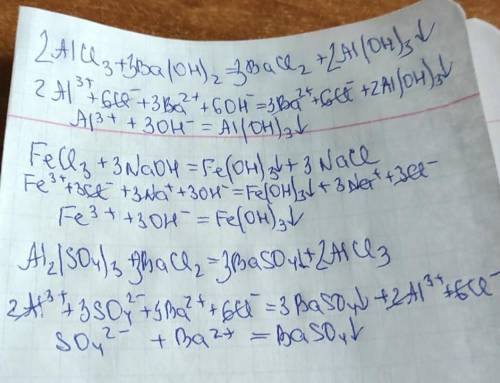 2AlCl₃+3Ba(OH)₂=3BaCl₂+2Al(OH)₃↓
2Al³⁺+6Cl⁻+3Ba²⁺+6OH⁻=3Ba²⁺+6Cl⁻+2Al(OH)₃↓
Al³⁺+3OH⁻=Al(OH)₃↓
FeCl₃+3NaOH=Fe(OH)₃↓+3NaCl
Fe³⁺+3Cl⁻+3Na⁺+3OH⁻=Fe(OH)₃↓+3Na⁺+3Cl⁻
Fe³⁺+3OH⁻=Fe(OH)₃↓
Al₂(SO₄)₃+3BaCl₂=3BaSO₄↓+2AlCl₃
2Al³⁺+3SO₄²⁻+3Ba²⁺+6Cl⁻=3BaSO₄↓+2Al³⁺+6Cl⁻
SO₄²⁻+Ba²⁺=BaSO₄↓